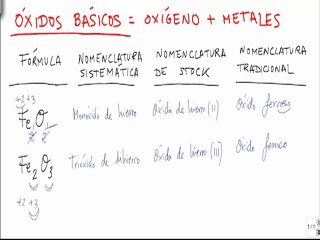 ÓXIDOS BÁSICOS = OXÍGENO + METALES
FÓRMULA NOMENCLATURA SISTEMÁTICA NOMENCLATURA DE STOCK NOMENCLATURA TRADICIONAL
+2+3
Fe2O Monóxido de hierro Óxido de hierro (II) Óxido ferroso
Fe2O3 Trióxido de dihierro Óxido de hierro (III) Óxido férrico
+2 +3
1/1